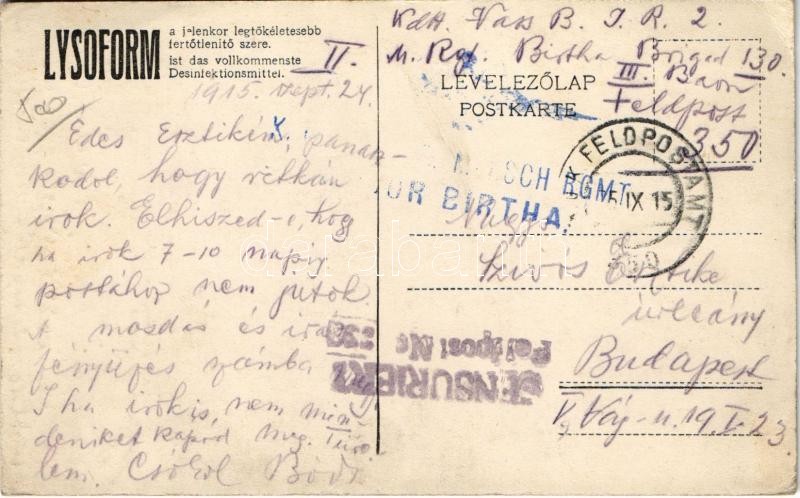 LYSOFORM
a jelenkor legtökéletesebb
fertőtlenitő szere.
ist das vollkommenste
Desinfektionsmittel.
II.
1915 szept. 24.
Édes Erzsikém, panasz-
kodol, hogy ritkán
irok. Elhiszed-e, hogy
ha irok 7-10 napig
postához nem jutok.
A mosdás és irás
fényűzés számba
S ha irok is, nem min
deniket kapod meg.
lem. Csókol Bódi
Kdtt. Vass B. I. R. 2.
M. Rgt. Birtha Brigad 130.
III Baon
Feldpost
350
LEVELEZŐLAP
POSTKARTE
FELDPOSTAMT
IX 15
350
MARSCH RGMT
BIRTHA.
Nagys.
Szivos Erzsike
úrleány
Budapest
V, Váj-u. 19. I. 23.
ZENSURIERT
Feldpost No
darabanth